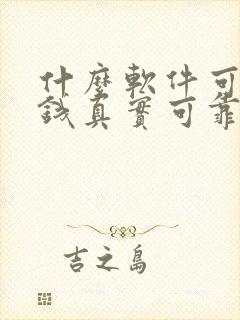 什麼軟件可
錢真實可靠
吉之島